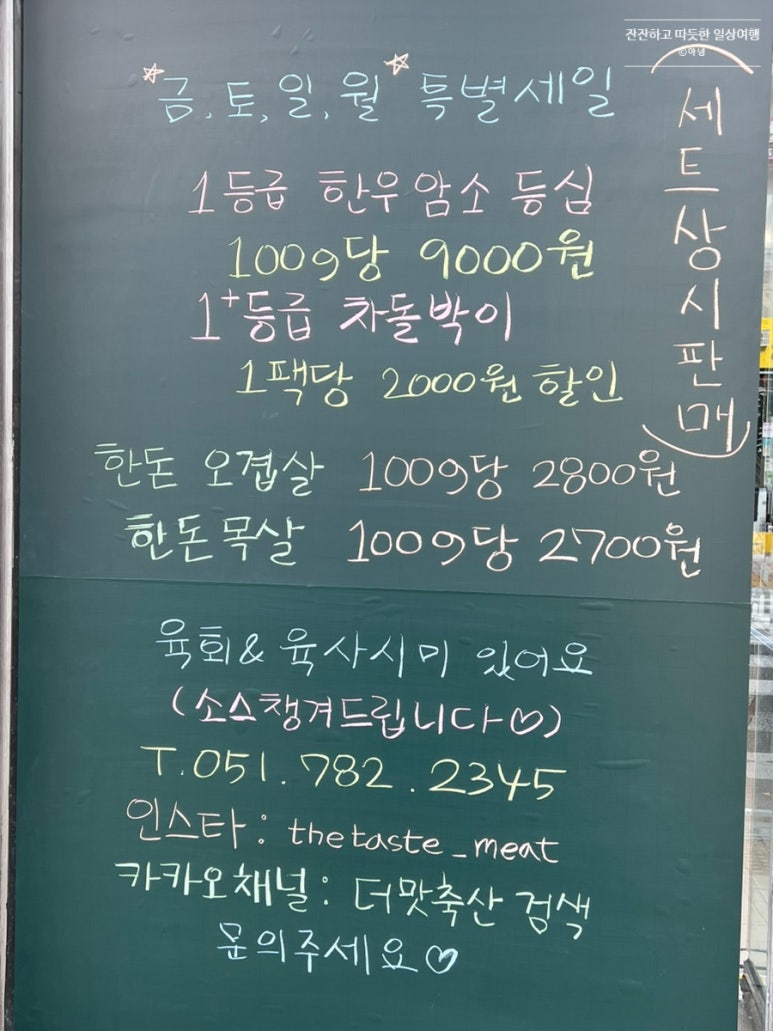 잔잔하고 따듯한 일상여행
금,토,일,월 특별세일
세트상시판매
1등급 한우암소 등심
100g당 9000원
1+등급 차돌박이
1팩당 2000원 할인
한돈 오겹살 100g당 2800원
한돈목살 100g당 2700원
육회& 육사시미 있어요
(소스챙겨드립니다♡)
T.051.782.2345
인스타: thetaste_meat
카카오채널: 더맛축산 검색
문의주세요♡